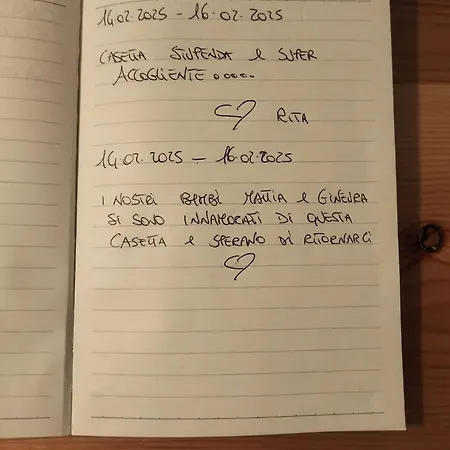 14.02.2025 - 16.02.2025
CASETTA STUPENDA e SUPER
ACCOGLIENTE ....
RITA
14.02.2025 - 16.02.2025
I NOSTRI BIMBI MATTIA e GINEVRA
SI SONO INNAMORATI DI QUESTA
CASETTA e SPERANO DI RITORNARCI